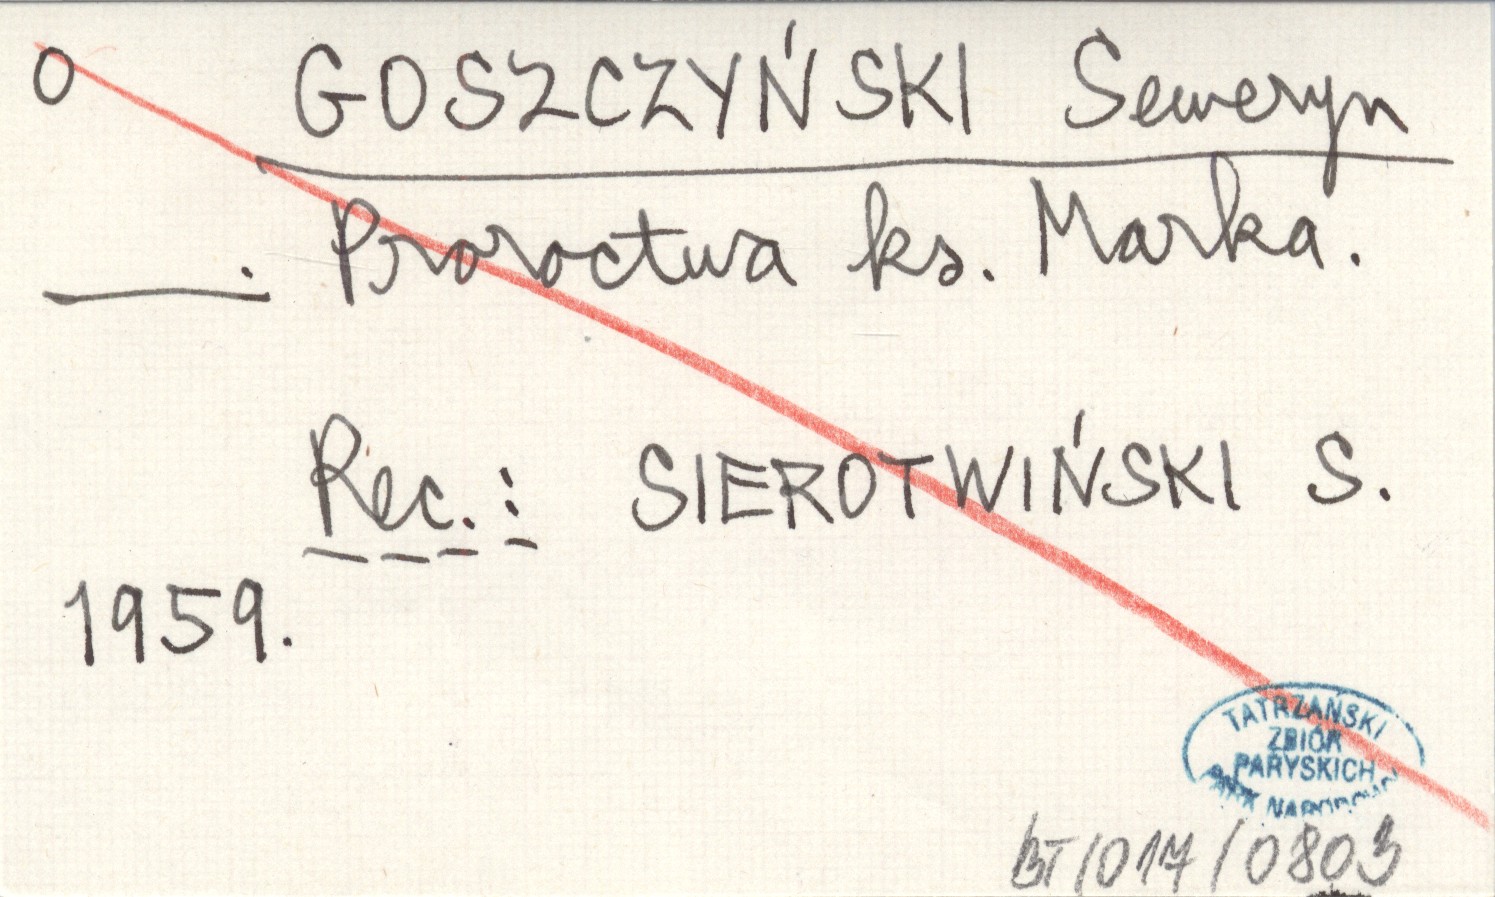 O GOSZCZYŃSKI Seweryn
Proroctwa ks. Marka.
Rec.: SIEROTWIŃSKI S.
1959.
TATRZAŃSKI
ZBIÓR
PARYSKICH
PARK NARODOWY
BT/017/0803